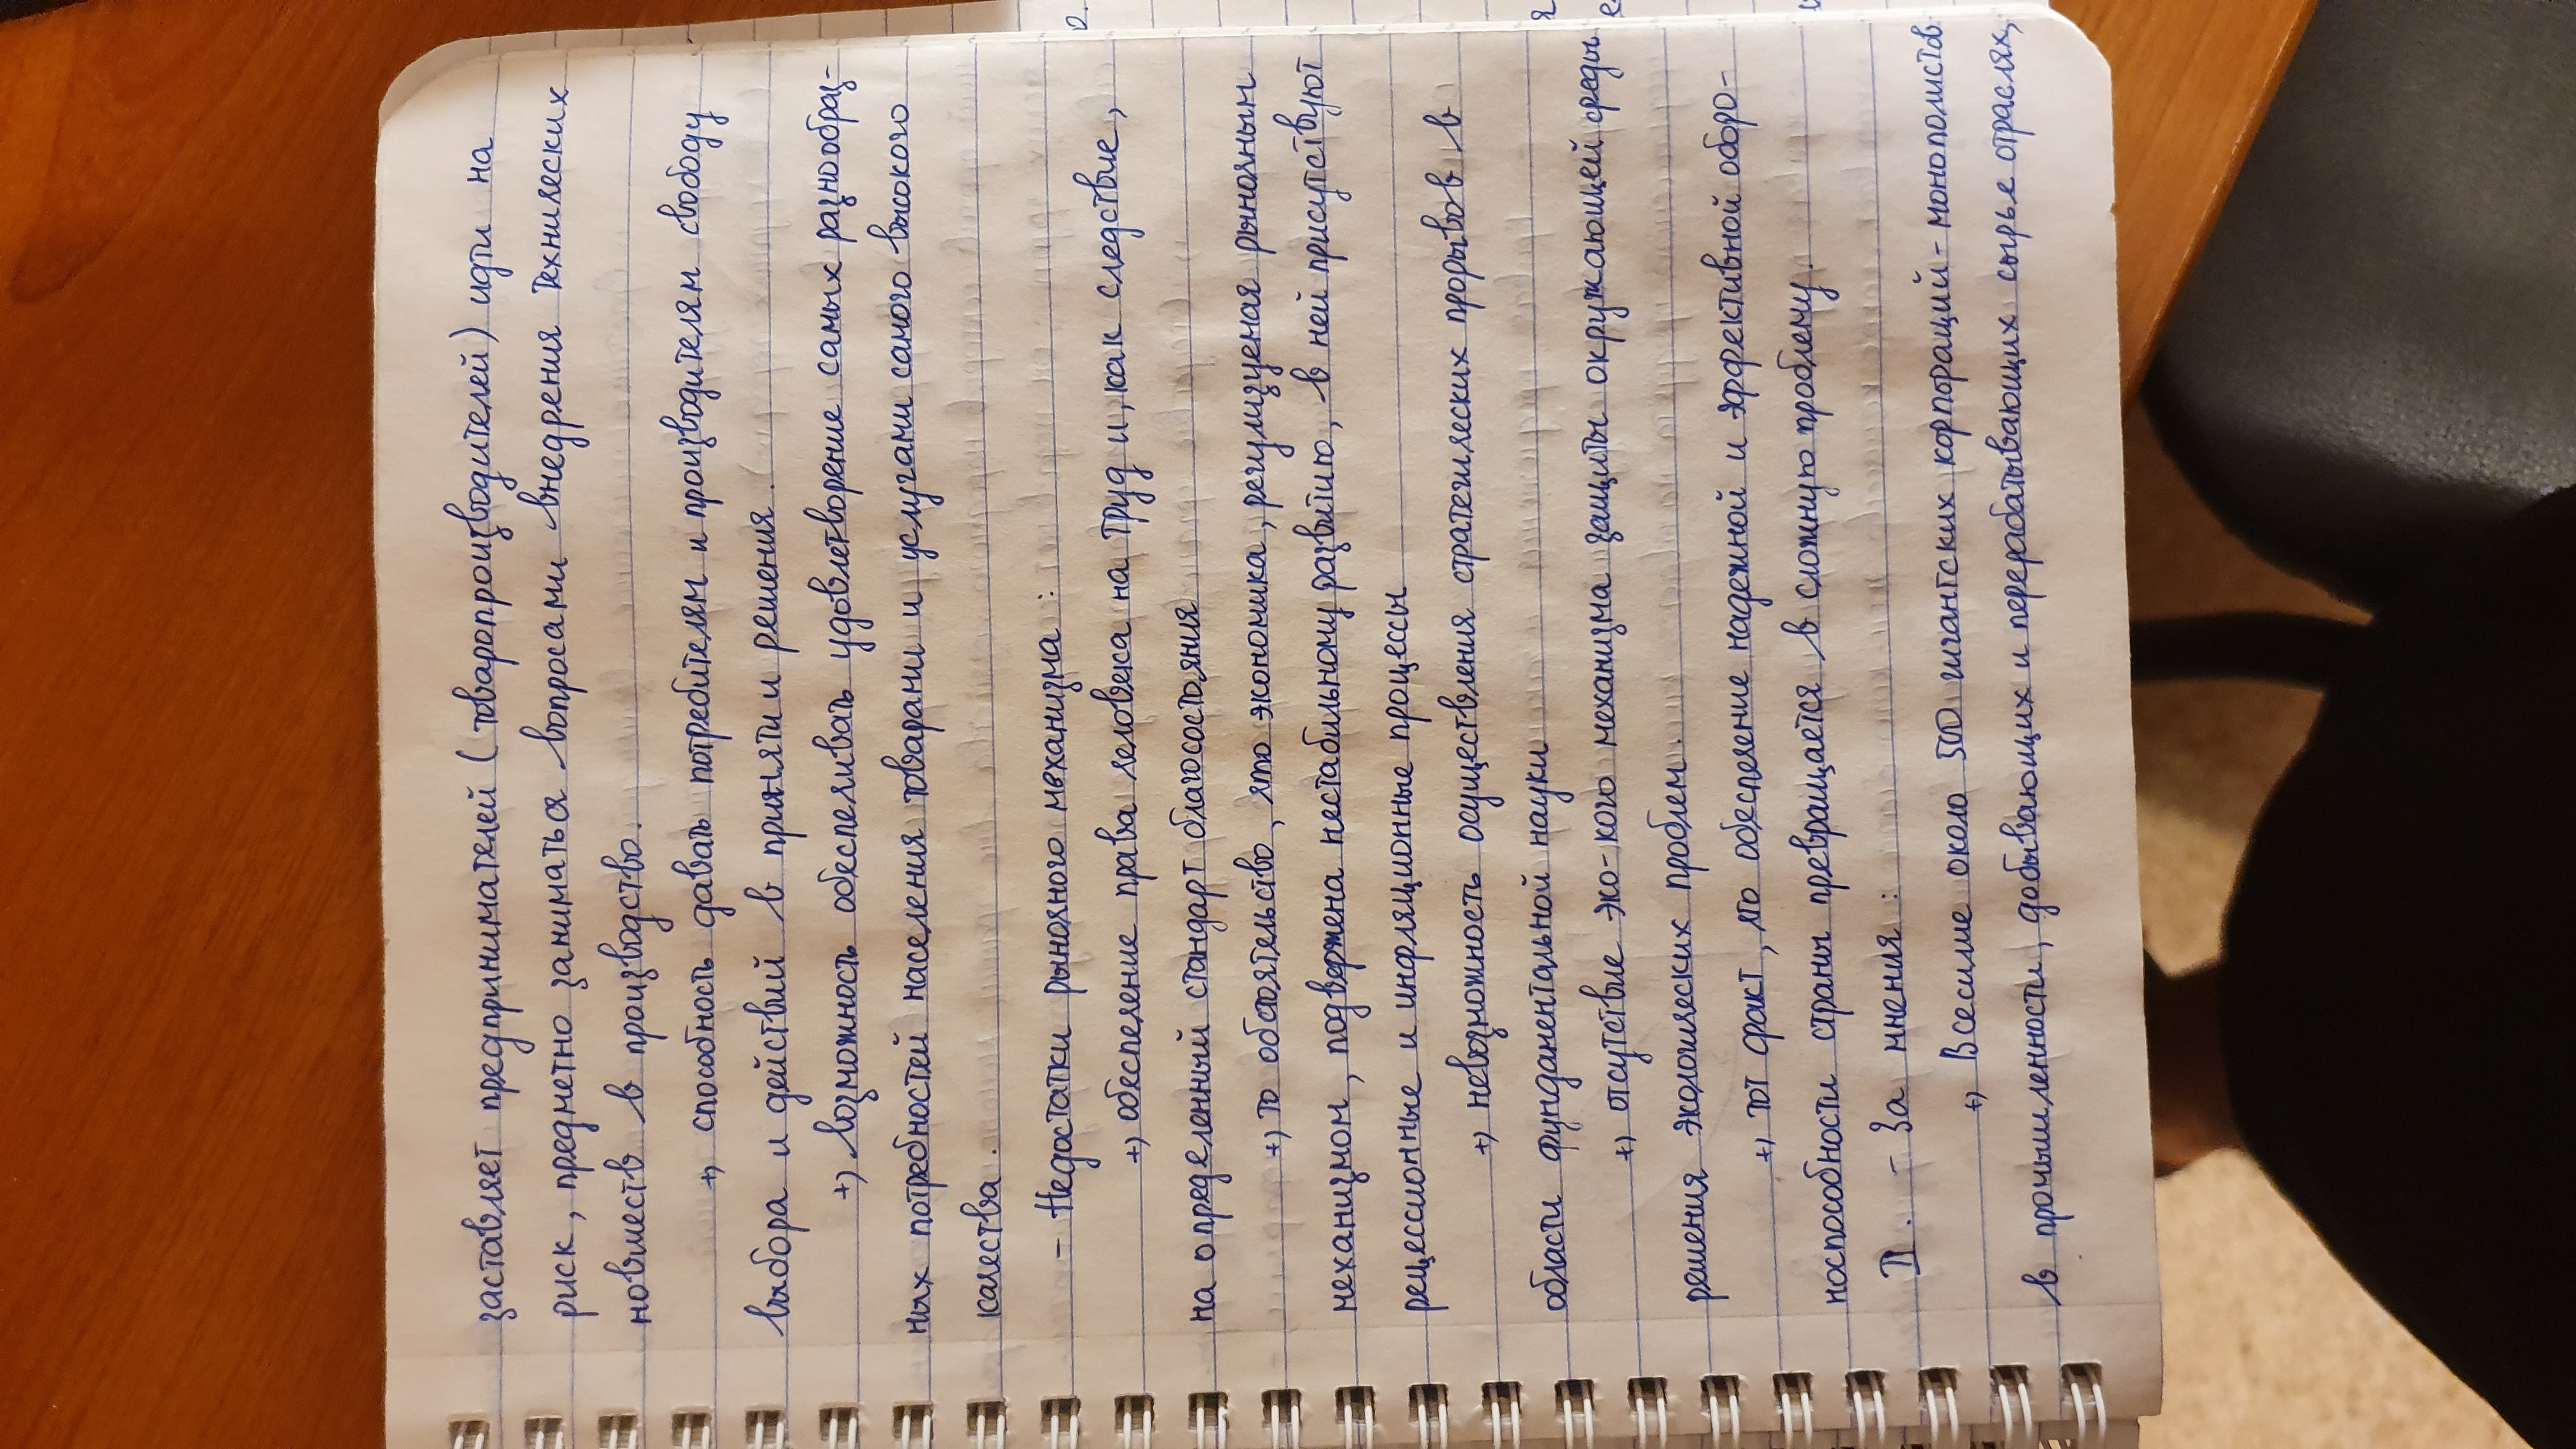 заставляет предпринимателей (товаропроизводителей) идти на
риск, предметно заниматься вопросами внедрения технических
новшеств в производство.
+) способность давать потребителям и производителям свободу
выбора и действий в принятии решения.
+) возможность обеспечивать удовлетворение самых разнообраз-
ных потребностей населения товарами и услугами самого высокого
качества.
- Недостатки рыночного механизма:
+) обеспечение права человека на труд и, как следствие,
на определенный стандарт благосостояния
+) то обстоятельство, что экономика, регулизуемая рыночным
механизмом, подвержена нестабильному развитию, в ней присутствуют
рецессионные и инфляционные процессы
+) невозможность осуществления стратегических прорывов в
области фундаментальной науки
+) отсутствие эко-кого механизма защиты окружающей среды
решения экологических проблем.
+) тот факт, что обеспечение надежной и эффективной оборо-
носпособности страны превращается в сложную проблему.
II. - За мнения:
+) Всесилие около 500 гигантских корпораций-монополистов
в промышленности, добывающих и перерабатывающих сырье отраслях,